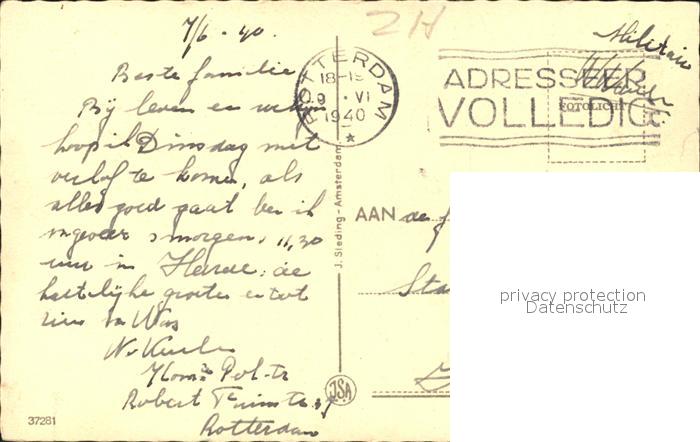 7/6 - 40.
Beste familie
Bij leven en
hoop ik Dinsdag met
verlof te komen, als
alles goed gaat ben ik
ongeveer smorgens 11,30
uur in
hartelijke groeten en tot
ziens van Wim
Robert
Rotterdam
37281
2H
ROTTERDAM
18-19
9 . VI
1940
J. Sleding-Amsterdam
JSA
Militair
ADRESSEER
VOLLEDIG
FOTOLICHT
AAN de f
Sta
privacy protection
Datenschutz